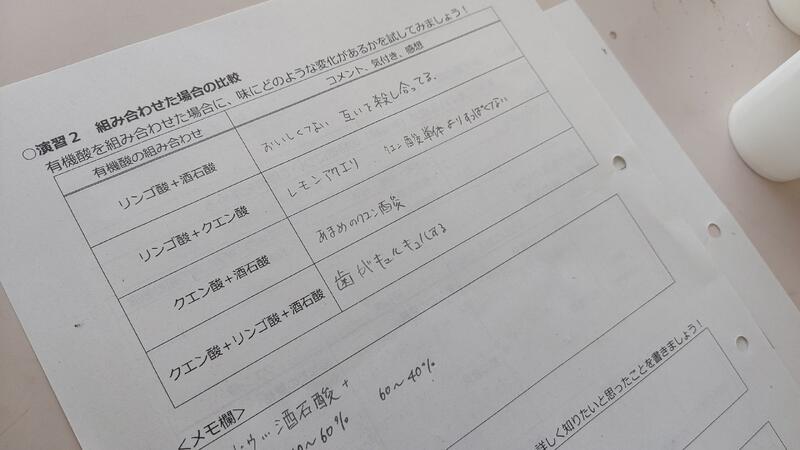 ○演習２ 組み合わせた場合の比較
有機酸を組み合わせた場合に、味にどのような変化があるかを試してみましょう！
有機酸の組み合わせ
コメント、気付き、感想
リンゴ酸＋酒石酸
おいしくない 互いを殺し合ってる。
リンゴ酸＋クエン酸
レモンアクエリ クエン酸単体よりすっぱくない
クエン酸＋酒石酸
あまめのクエン酸
クエン酸＋リンゴ酸＋酒石酸
歯がキュルキュルする
＜メモ欄＞
酒石酸＋
60〜40%
〜60%
詳しく知りたいと思ったことを書きましょう！